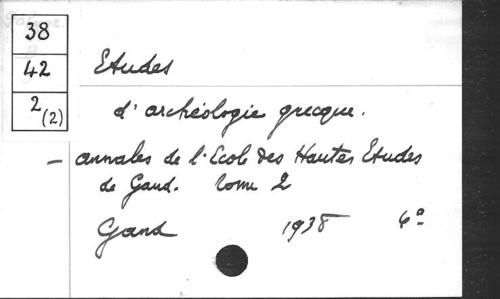 38
42
2
(2)
Etudes
d'archéologie grecque.
– annales de l'Ecol des Hautes Etudes
de Gand. tome 2
Gand 1938 4º